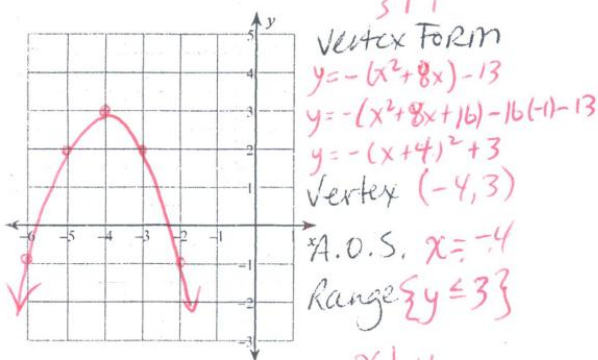 y
5
4
3
2
1
-6 -5 -4 -3 -2 -1
x
-1
-2
-3
Vertex FORM
y=-(x²+8x)-13
y=-(x²+8x+16)-16(-1)-13
y=-(x+4)²+3
Vertex (-4,3)
A.O.S. x=-4
Range {y≤3}